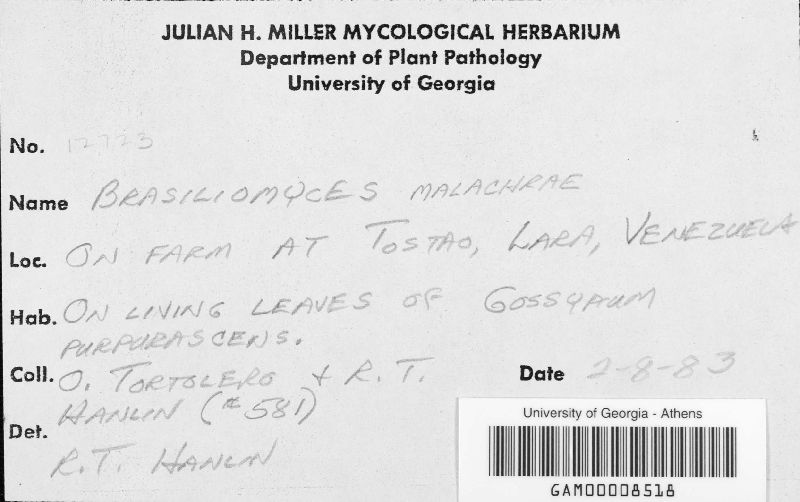 JULIAN H. MILLER MYCOLOGICAL HERBARIUM
Department of Plant Pathology
University of Georgia
No. 12723
Name BRASILIOMYCES MALACHRAE
Loc. ON FARM AT TOSTAO, LARA, VENEZUELA
Hab. ON LIVING LEAVES OF GOSSYPIUM
PURPURASCENS.
Coll. O. TORTOLERO + R.T. Date 2-8-83
HANLIN (#581)
Det.
R.T. HANLIN
University of Georgia - Athens
GAM00008518